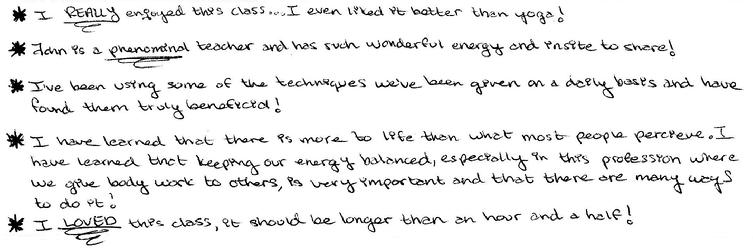 * I REALLY enjoyed this class... I even liked it better than yoga!
* John is a phenominal teacher and has such wonderful energy and insite to share!
* I've been using some of the techniques we've been given on a daily basis and have
found them truly beneficial!
* I have learned that there is more to life than what most people percieve. I
have learned that keeping our energy balanced, especially in this profession where
we give body work to others, is very important and that there are many ways
to do it!
* I LOVED this class, it should be longer than an hour and a half!